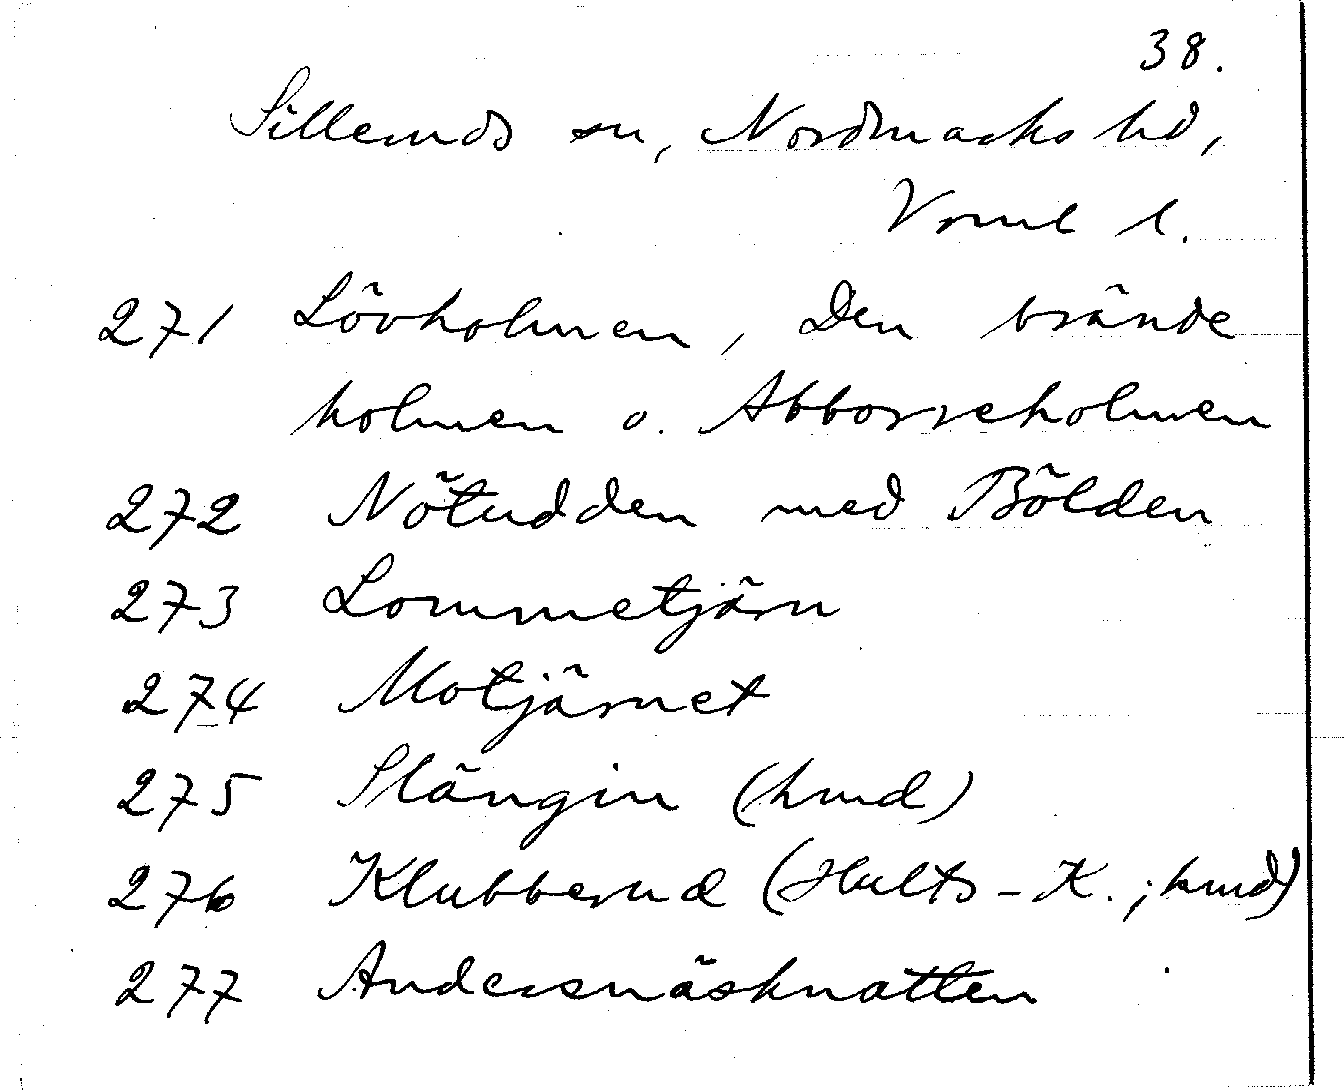 38.
Silleruds sn, Nordmarks hd,
Vrml l.
271 Lövholmen, Den brände
holmen o. Abborreholmen
272 Nötudden med Bölden
273 Lommetjärn
274 Motjärnet
275 Slängin (hmd)
276 Klubberud (Hults-K.; hmd)
277 Andersnäsknatten